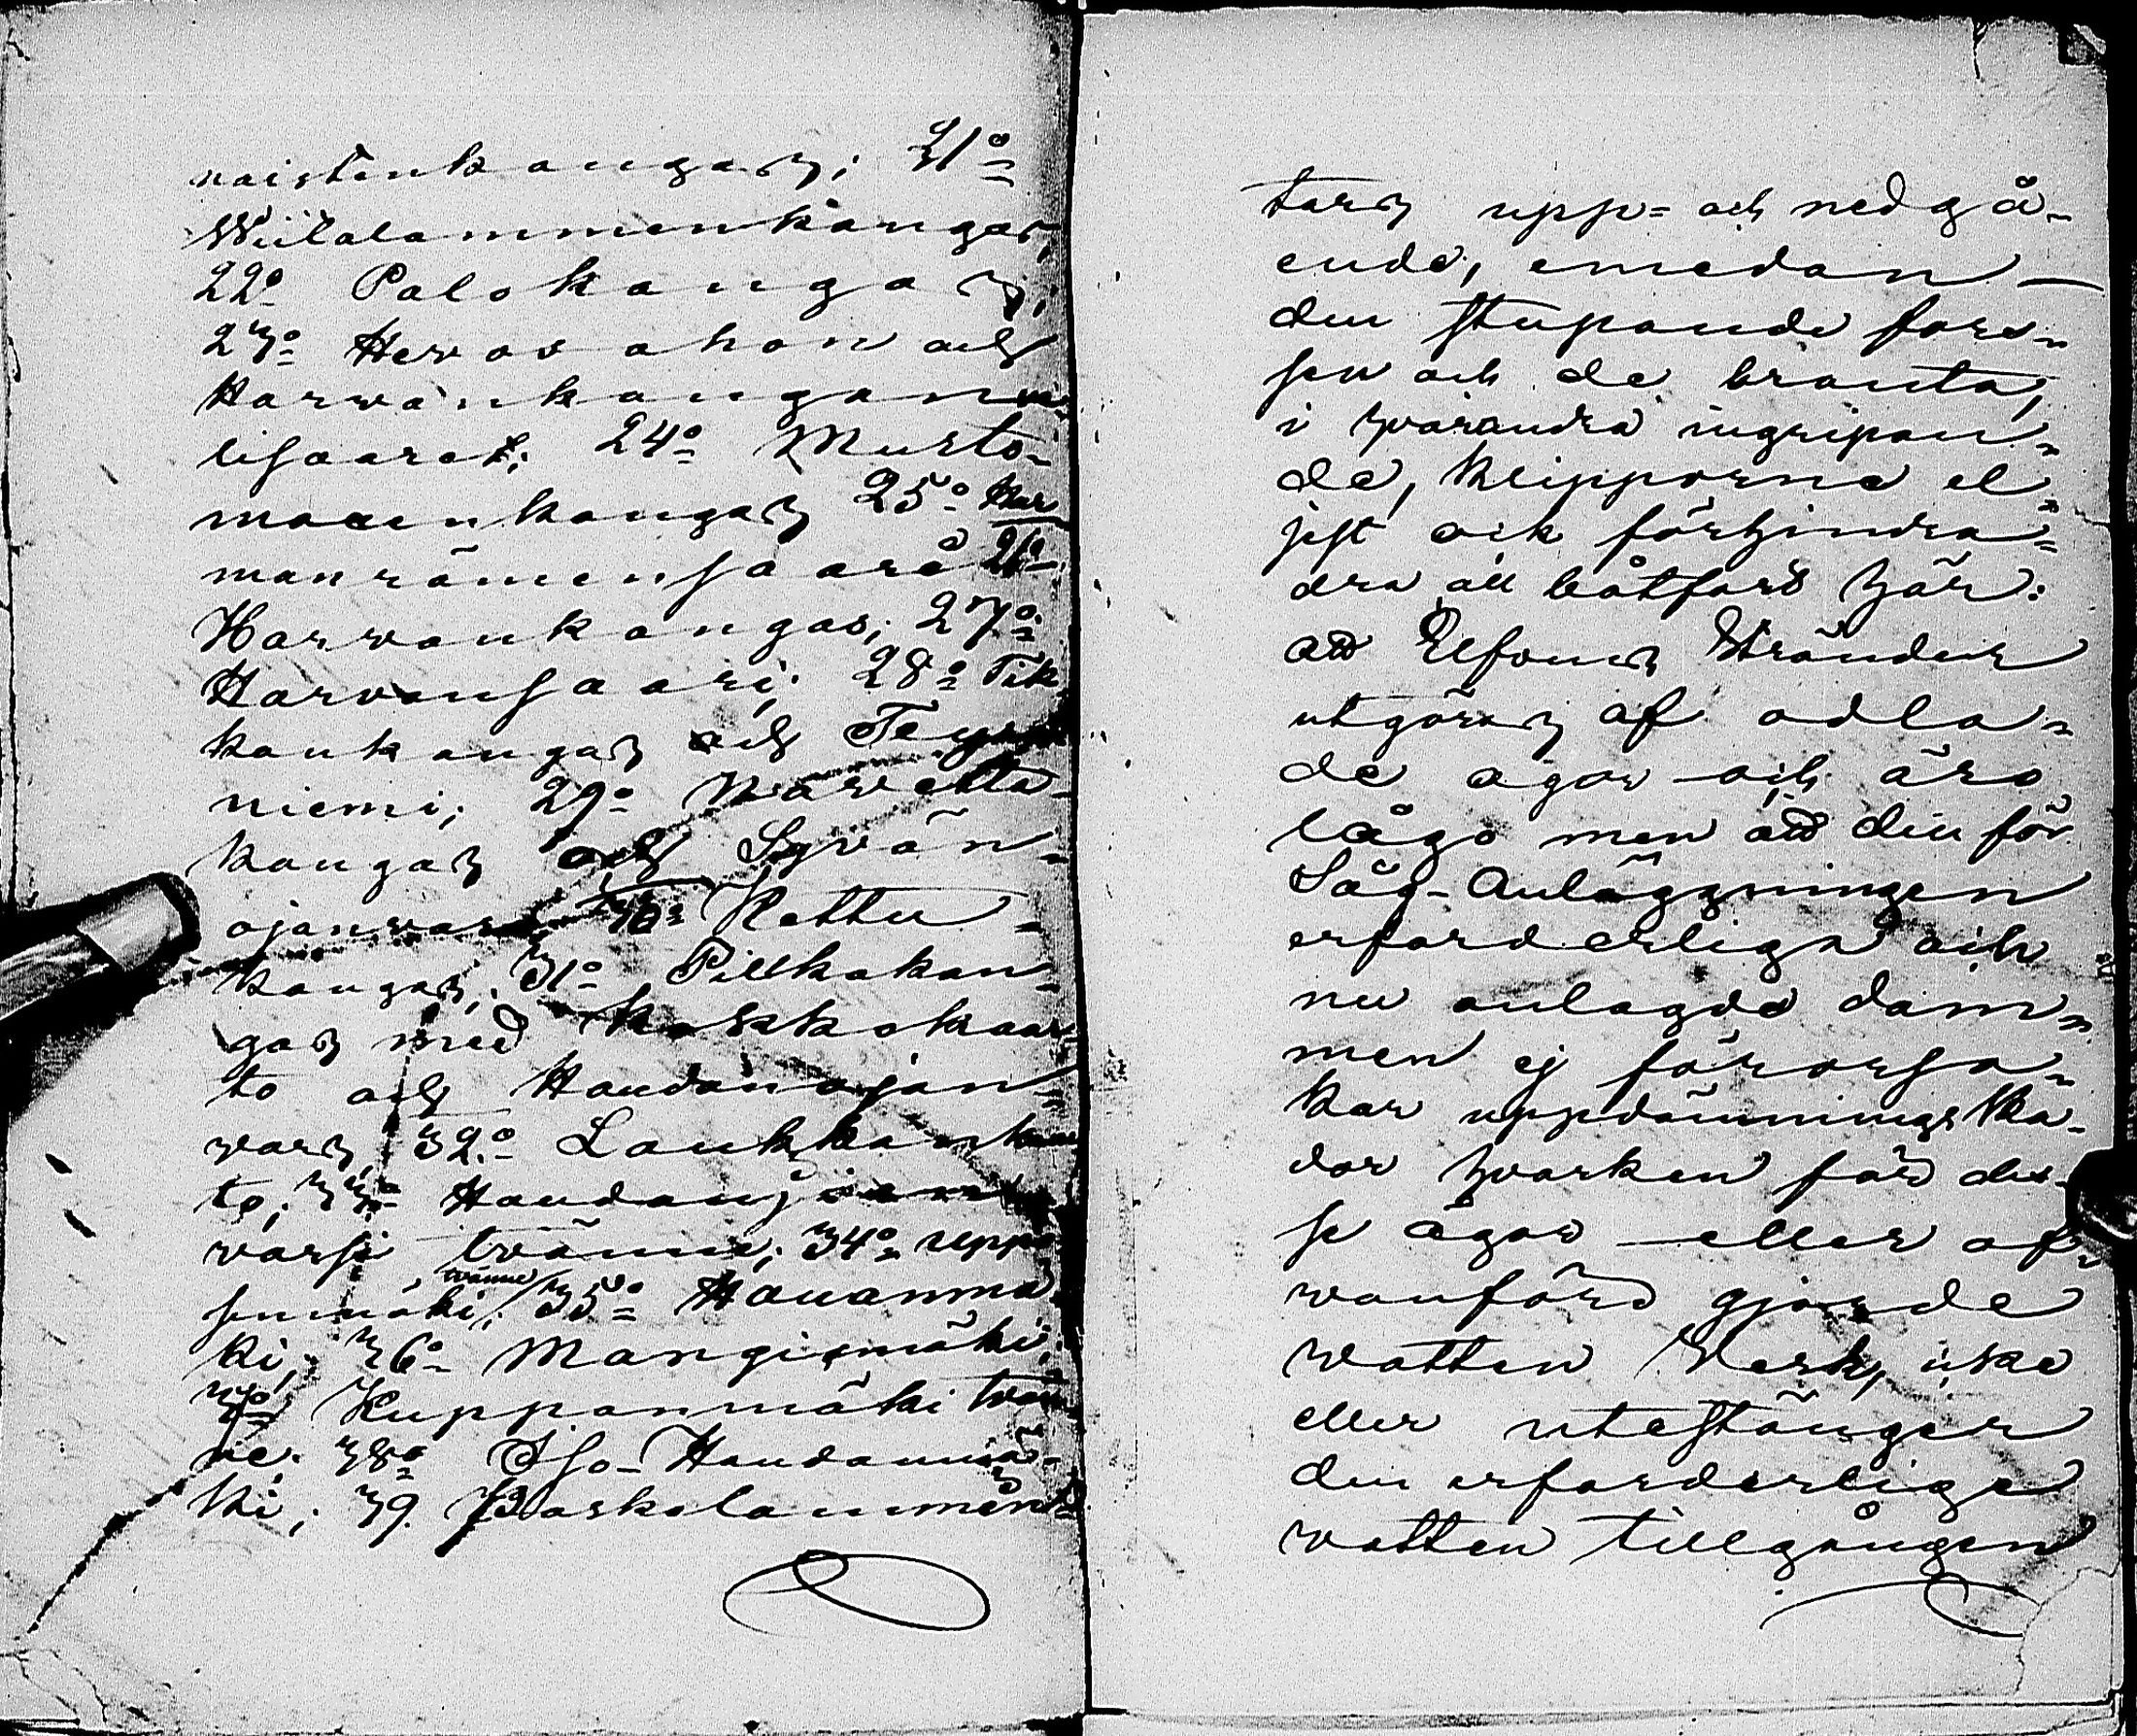 naistenkangas; 21º
Wiitalammenkangas;
22º Palokangas;
23º Hervasahon och
Harvankangan
lisaaret; 24º Musto-
maenkangas 25º Har
manrämensaare 26º
Harvankangas; 27º
Harvansaari; 28º Tik
kankangas och Teyri
niemi; 29º Navetta-
kangas och Syvän-
ojanvars 30º Kettu-
kangas; 31º Pillkakan-
gas med Koskkokaar
to och Haudanojan-
vars, 32º Laukkankaar
to; 33º Haudanojan
varsi tvänne; 34º Uppo
senmäki, tvänne; 35º Hauanmä
ki; 36º Mangismäki;
37º Kupponmäki tvän
ne; 38º Iso-Haudanmä-
ki; 39. Paskolammen-
tars upp- och nedgå-
ende, emedan
den stupande fors-
sen och de branta,
i hvarandra ingripan-
de, klipporna el-
jest ock förhindra-
dra all båtfart här:
att Elfvens Stränder
utgöras af odla-
de ägor och äro
låga men att den för
Såg-Anläggningen
erforderliga och
nu anlagda dam-
men ej förorsa-
kar uppdämningsska-
dor hvarken för des-
se ägor eller of-
vanför gjorde
vatten Verk, icke
eller utestänger
den erforderlige
vatten tillgången